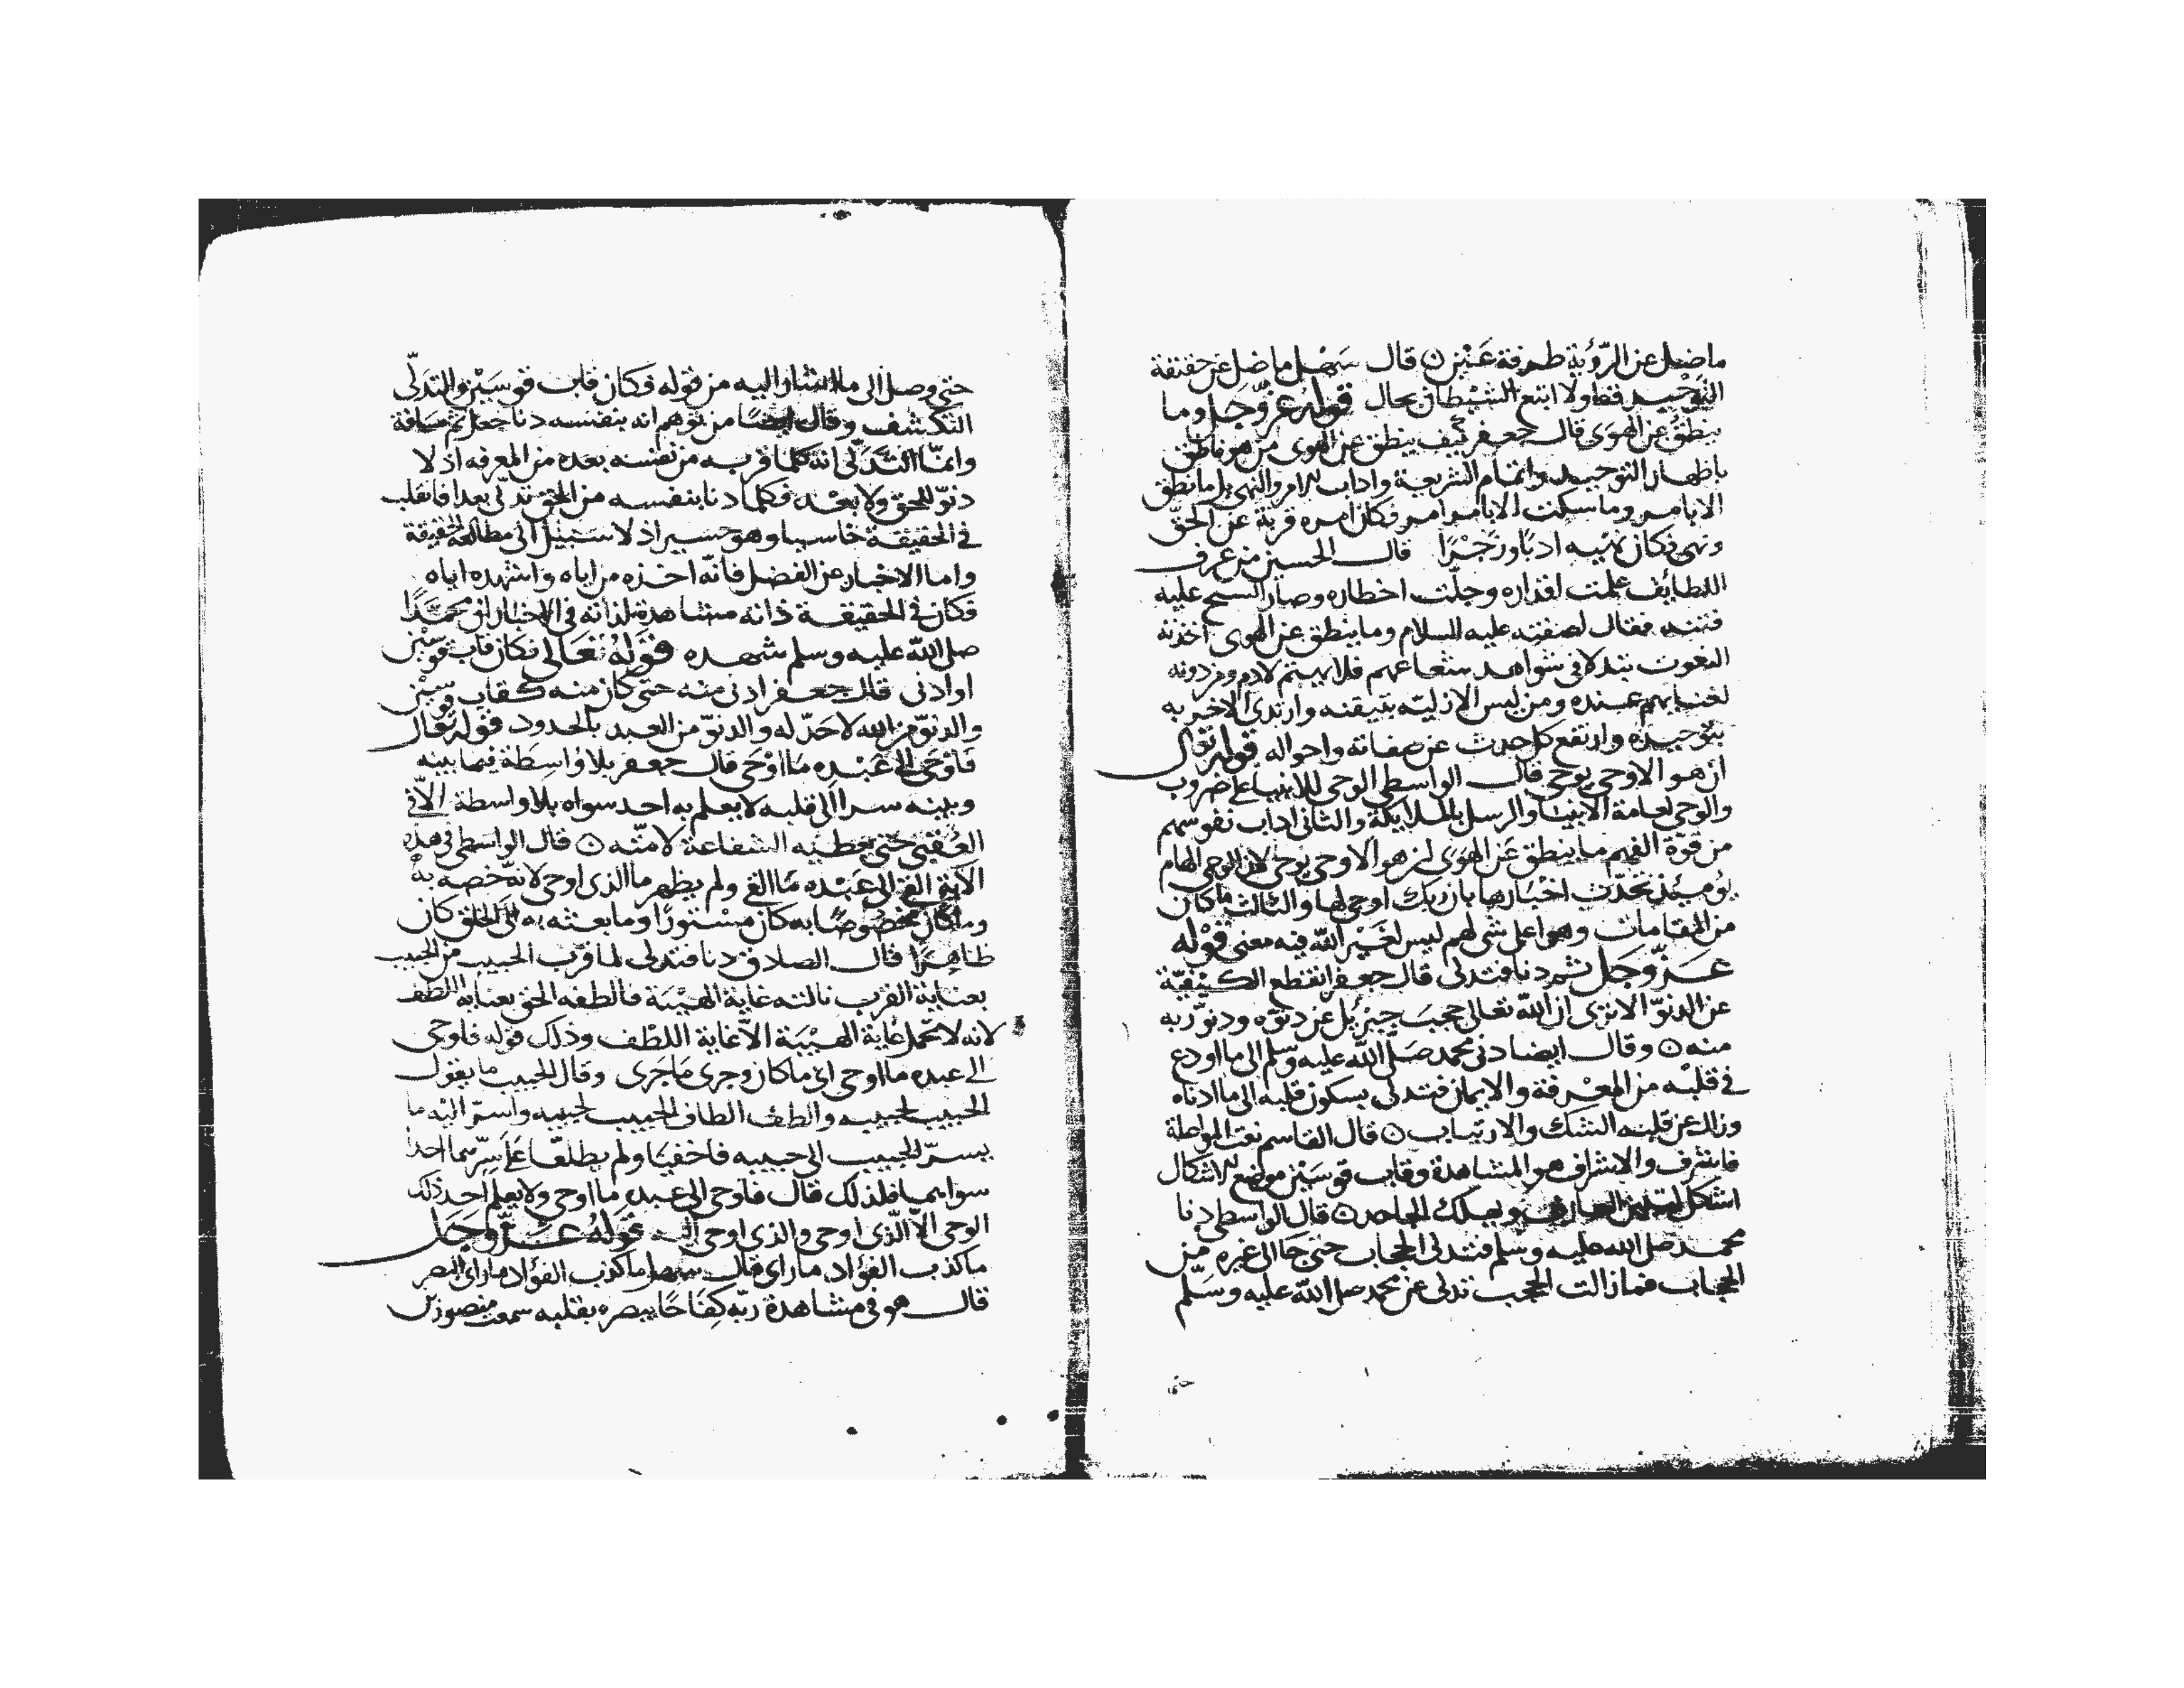 ما ضل عن الرؤية طرفة عين ٥ قال سهل ما ضل عن حقيقة
التوحيد قط ولا اتبع الشيطان بحال قوله عز وجل وما
ينطق عن الهوى قال جعفر كيف ينطق عن الهوى من هو ناطق
باظهار التوحيد واتمام الشريعة واداب الامر والنهى بل ما نطق
الا بامر وما سكت الا بامر امر فكان امره قربة عن الحق
ونهى فكان نهيه ادبا وزجرا قال الحسين من عرف
اللطايف عملت اقداره وجلت اخطاره وصار السبح عليه
فتنه فقال لصفيه عليه السلام وما ينطق عن الهوى اخذته
النعوت في شواهد شعاعهم فلا لادم ومن دونه
بهم عنده ومن لبس الازلية بتيقنه وارتدى الاخر به
بتوحيده وارتفع كل حدث عن صفاته واحواله قوله تعالى
ان هو الا وحى يوحى قال الواسطى الوحى للانبيا على ضروب
والوحى لعامة الانبيا والرسل بالملايكة والثانى اداب نفوسهم
من قوة الفهم ما ينطق عن الهوى ان هو الا وحى يوحى لان الوحى الهام
يومئذ تحدث اخبارها بان ربك اوحى لها والثالث ما كان
من المقامات وهو اعلى شى لهم ليس لغير الله فيه معنى قوله
عز وجل ثم دنا فتدلى قال جعفر انقطع الكيفية
عن الدنو الا ترى ان الله تعالى حجب جبريل عن دنوه ودنو ربه
منه ٥ وقال ايضا دنى محمد صلى الله عليه وسلم الى ما اودع
فى قلبه من المعرفة والايمان فتدلى بسكون قلبه الى ما ادناه
وزال عن قلبه الشك والارتياب ٥ قال القاسم نعت المواصلة
فاشرف والاشراف هو المشاهدة وقاب قوسين موضع الاشكال
اشكل الجاحد ٥ قال الواسطى دنا
محمد صلى الله عليه وسلم فتدلى الحجاب حتى جا الى غيره من
الحجاب فما زالت الحجب تدلى عن محمد صلى الله عليه وسلم
حتى
حتى وصل الى ما اشار اليه من قوله فكان قاب قوسين والتدلى
التكشف وقال ايضا من توهم انه بنفسه دنا جعل ثم مسافة
وانما التدلى انه كلما قرب من نفسه بعده من المعرفه اذ لا
دنو للحق ولا بعد فكلما دنا بنفسه من الحق تدلى بعدا فانقلب
فى الحقيقة خاسيا وهو حسير اذ لا سبيل الى مطالعة الحقيقة
واما الاخبار عن الفضل فانه اخذه من اياه واشهده اياه
فكان فى الحقيقة ذاته مشاهدة لذاته فى الاخبار ان محمدا
صلى الله عليه وسلم شهده قوله تعالى فكان قاب قوسين
او ادنى قال جعفر ادنى منه حتى كان منه كقاب قوسين
والدنو من الله لا حد له والدنو من العبد بالحدود قوله تعالى
فاوحى الى عبده ما اوحى قال جعفر بلا واسطة فيما بينه
وبينه سرا الى قلبه لا يعلم به احد سواه بلا واسطة الا فى
العقبى حتى يعطيه الشفاعة لامته ٥ قال الواسطى فى هذه
الاية القى الى عبده ما القى ولم يظهر ما الذى اوحى لانه خصه به
وما كان مخصوصا به كان مستورا وما بعثه به الى الخلق كان
ظاهرا قال الصادق دنا فتدلى لما قرب الحبيب من الحبيب
بعناية القرب نالته غاية الهيبة فالطفه الحق بعناية اللطف
لانه لا تحمل غاية الهيبة الا غاية اللطف وذلك قوله فاوحى
الى عبده ما اوحى اى ما كان وجرى ما جرى وقال الحبيب ما يقول
الحبيب لحبيبه والطف الطاف الحبيب لحبيبه واسر اليه ما
يسر الحبيب الى حبيبه فاخفيا ولم يطلعا على سرهما احدا
سواهما فلذلك قال فاوحى الى عبده ما اوحى ولا يعلم احد ذلك
الوحى الا الذى اوحى والذى اوحى اليه قوله عز وجل
ما كذب الفؤاد ما راى قال سهل ما كذب الفؤاد ما راى البصر
قال هو فى مشاهدة ربه كفاحا يبصره بقلبه سمعت منصور بن